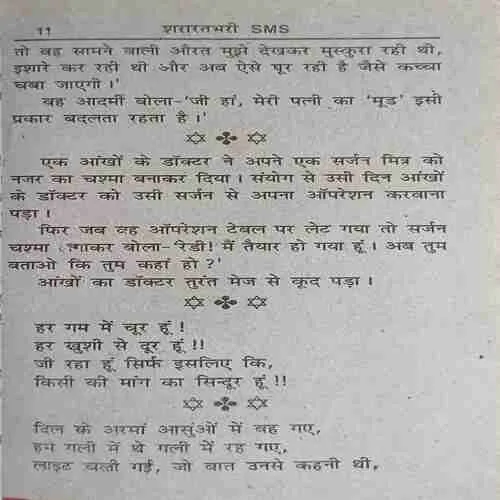 11 शरारतभरी SMS
तो वह सामने वाली औरत मुझे देखकर मुस्कुरा रही थी,
इशारे कर रही थी और अब ऐसे घूर रही है जैसे कच्चा
चबा जाएगी।'
वह आदमी बोला-'जी हां, मेरी पत्नी का 'मूड' इसी
प्रकार बदलता रहता है।'
एक आंखों के डॉक्टर ने अपने एक सर्जन मित्र को
नजर का चश्मा बनाकर दिया। संयोग से उसी दिन आंखों
के डॉक्टर को उसी सर्जन से अपना ऑपरेशन करवाना
पड़ा।
फिर जब वह ऑपरेशन टेबल पर लेट गया तो सर्जन
चश्मा गाकर बोला-'रेडी! मैं तैयार हो गया हूं। अब तुम
बताओ कि तुम कहां हो?'
आंखों का डॉक्टर तुरंत मेज से कूद पड़ा।
हर गम में चूर हूं!
हर खुशी से दूर हूं!!
जी रहा हूं सिर्फ इसलिए कि,
किसी की मांग का सिन्दूर हूं!!
दिल के अरमां आसुंओं में वह गए,
हम गली में थे गली में रह गए,
लाइट चली गई, जो बात उनसे कहनी थी,